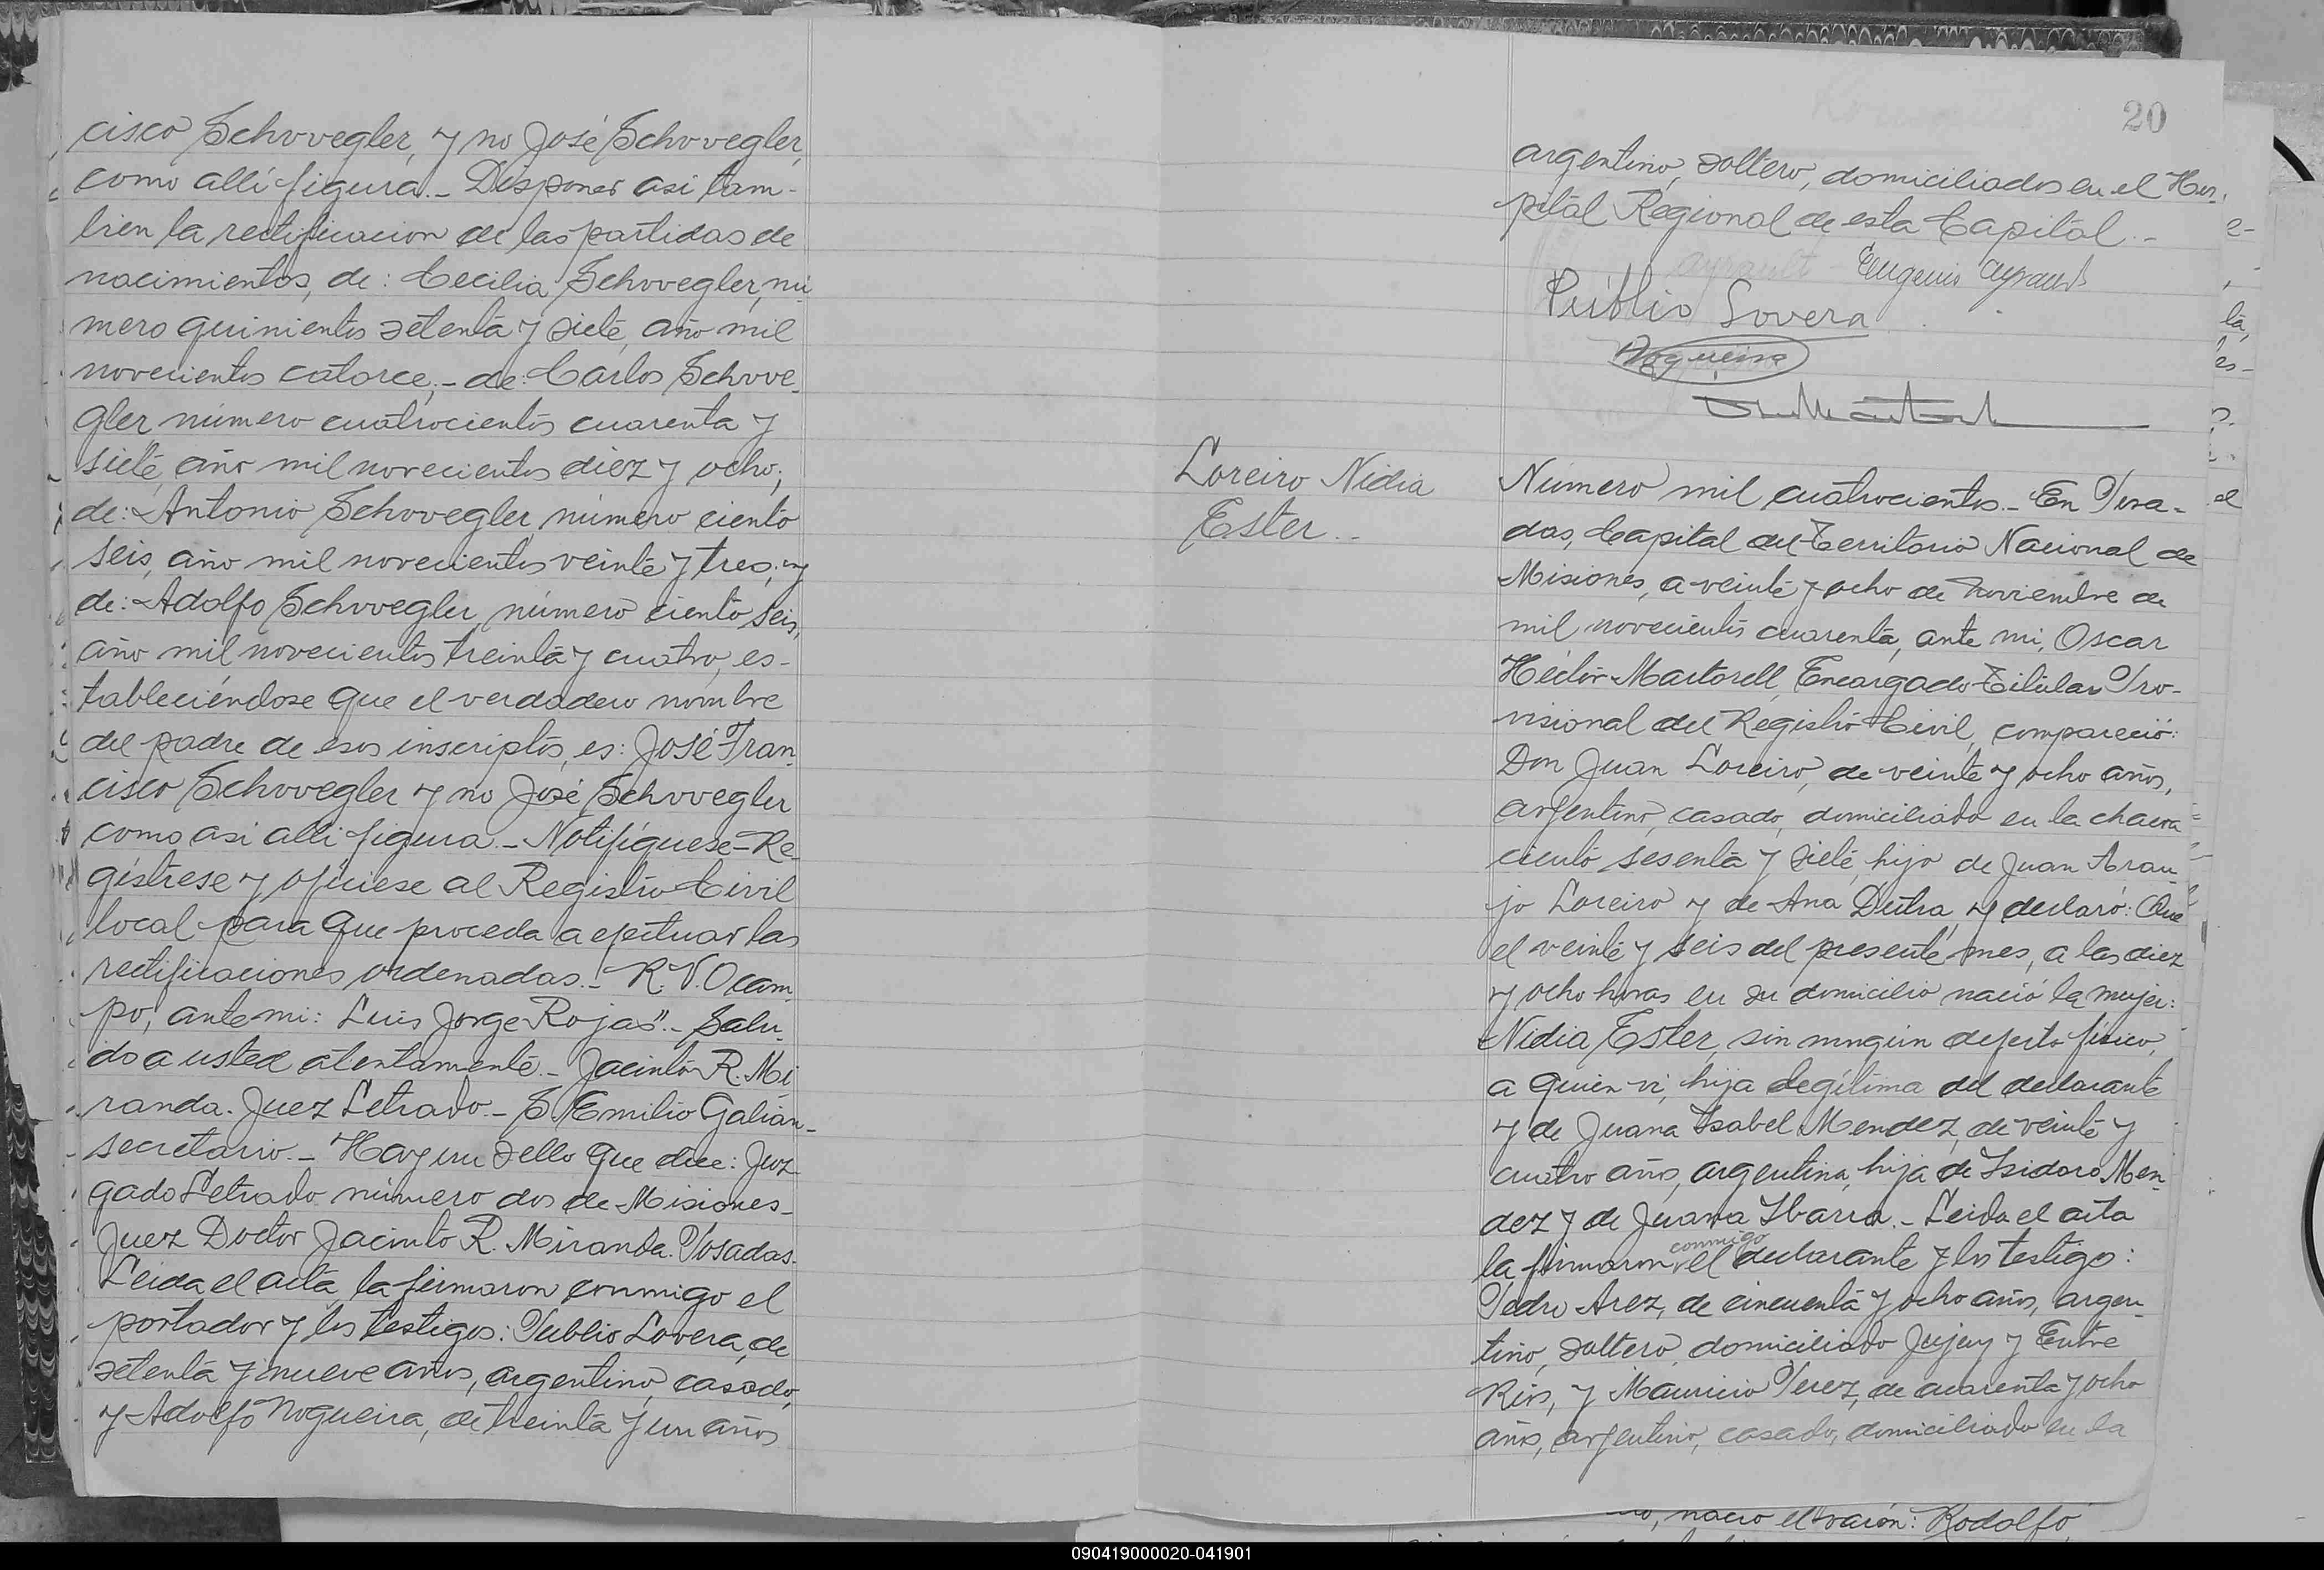 cisco Schwegler, y no José Schwegler,
como allí figura.- Disponer asi tam-
bien la rectificacion de las partidas de
nacimientos, de: Cecilia Schwegler, nú
mero quinientos setenta y siete, año mil
novecientos catorce;- de: Carlos Schwe-
gler, número cuatrocientos cuarenta y
siete, año mil novecientos diez y ocho;
de: Antonio Schwegler, número ciento
seis, año mil novecientos veinte y tres; y
de: Adolfo Schwegler, número ciento seis,
año mil novecientos treinta y cuatro, es-
tableciéndose que el verdadero nombre
del padre de esos inscriptos, es: José Fran-
cisco Schwegler y no José Schwegler
como asi alli figura.- Notifíquese-Re-
gístrese y ofíciese al Registro Civil
local para que proceda a efectuar las
rectificaciones ordenadas.- R. V. Ocam-
po, ante mi: Luis Jorge Rojas".- Salu-
do a usted atentamente.- Jacinto R. Mi
randa. Juez Letrado.- S. Emilio Galian-
secretario.- Hay un sello que dice: Juz-
gado Letrado número dos de Misiones-
Juez Doctor Jacinto R. Miranda. Posadas.
Leida el acta, la firmaron conmigo el
portador y los testigos: Publio Lovera, de
setenta y nueve años, argentino, casado,
y Adolfo Nogueira, de treinta y un años
20
argentino, soltero, domiciliados en el Hos-
pital Regional de esta Capital.-
Eugenio Ayrault
Publio Lovera
Nogueira
Loreiro Nidia
Ester.-
Número mil cuatrocientos.- En Posa-
das, Capital del Territorio Nacional de
Misiones, a veinte y ocho de Noviembre de
mil novecientos cuarenta, ante mi, Oscar
Héctor Martorell, Encargado Titular Pro-
visional del Registro Civil, compareció:
Don Juan Loreiro, de veinte y ocho años,
argentino, casado, domiciliado en la chacra
ciento sesenta y siete, hijo de Juan Arau-
jo Loreiro y de Ana Dutra, y declaró: Que
el veinte y seis del presente mes, a las diez
y ocho horas en su domicilio nació la mujer:
Nidia Ester, sin ningún defecto físico,
a quien vi, hija legítima del declarante
y de Juana Isabel Mendez, de veinte y
cuatro años, argentina, hija de Isidoro Men-
dez y de Juana Ibarra.- Leida el acta
la firmaron conmigo el declarante y los testigo:
Pedro Arez, de cincuenta y ocho años, argen-
tino, soltero, domiciliado Jujuy y Entre
Rios, y Mauricio Perez, de cuarenta y ocho
años, argentino, casado, domiciliado en la
nacio el varón: Rodolfo,
090419000020-041901